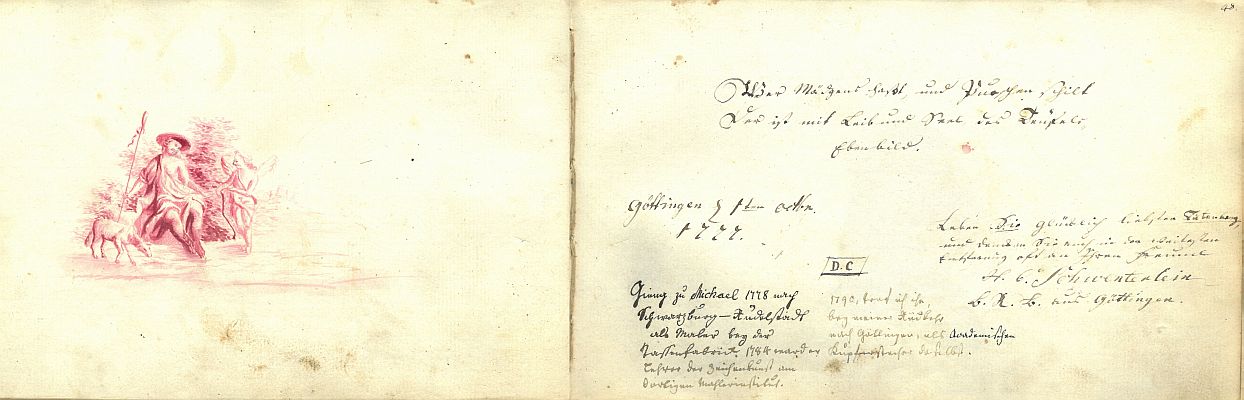 48.
Wer Mädgens haßt, und Purschen schilt
Der ist mit Leib und Seel des Teüfels,
Ebenbild.
Göttingen d 1ten octbr.
1777.
Leben Sie glücklich liebster
und denken Sie auch in der weitesten
Entfernung oft an Ihren Freund
H. C. Schwenterlein
d. K. B. aus Göttingen.
D. C
Gieng zu Michael 1778 nach
Schwarzburg-Rudolstadt
als Maler bey der
Tassenfabrick. 1784 ward er
Lehrer der Zeichenkunst am
dortigen Mahlerinstitut.
1790, traf ich ihn,
bey meiner Rückkehr
nach Göttingen, als Academischen
Kupferstecher daselbst.